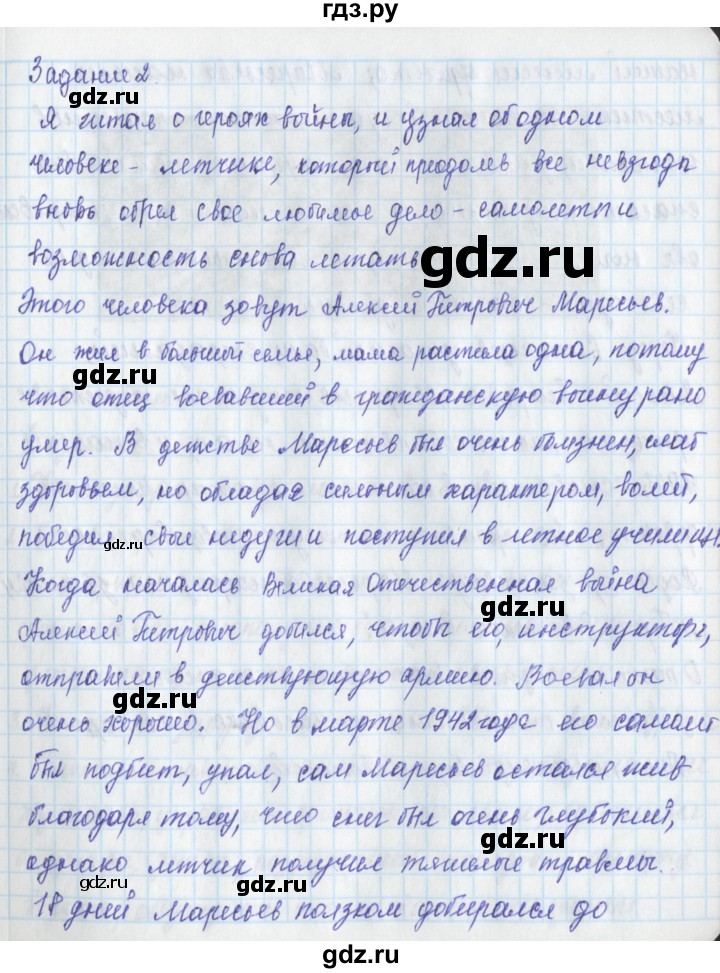 гдз.ру
Задание 2
gdz.ru
Я читал о героях войны, и узнал об одном
человеке - летчике, который преодолев все невзгоды
вновь обрел свое любимое дело - самолеты и
возможность снова летать
gdz.ru
Этого человека зовут Алексей Петрович Маресьев.
Он жил в большой семье, мама растила одна, потому
gdz.ru
что отец воевавший в гражданскую войну рано
умер. В детстве Маресьев был очень болезнен, слаб
здоровьем, но обладая сильным характером, волей,
gdz.ru
победил свои недуги и поступил в летное училищ
gdz.ru
Когда началась Великая Отечественная война
gdz.ru
Алексей Петрович добился, чтобы его, инструктора,
отправили в действующую армию. Воевал он
gdz.ru
очень хорошо. Но в марте 1942 года его самолет
был подбит, упал, сам Маресьев остался жив
благодаря тому, что снег был очень глубокий,
gdz.ru
однако летчик получил тяжелые травмы.
gdz.ru
gdz.ru
18 дней Маресьев ползком добирался до
gdz.ru
gdz.ru